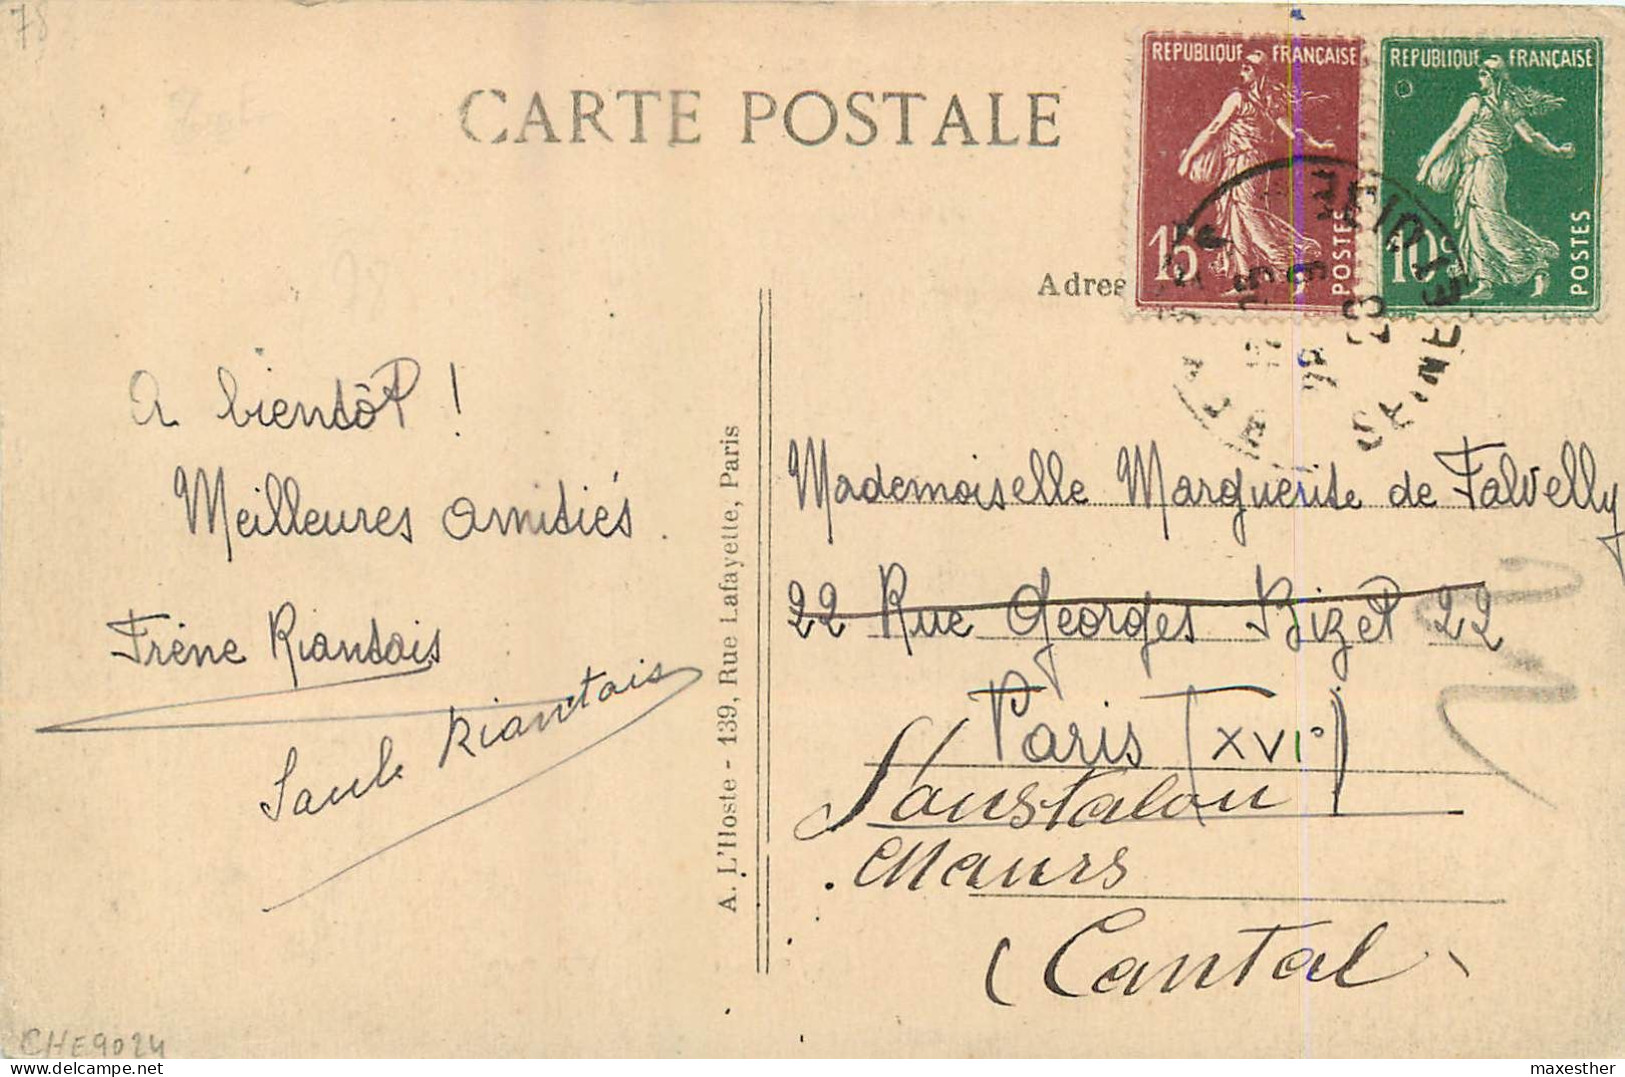 78
CARTE POSTALE
REPUBLIQUE FRANÇAISE
15c
POSTES
REPUBLIQUE FRANÇAISE
10c
POSTES
Adres
A bientôt !
Meilleures amitiés.
Irène Riantais
Riantais
A. L'Hoste - 139, Rue Lafayette, Paris
Mademoiselle Marguerite de Falvelly
22 Rue Georges Bizet 22
Paris (XVIº)
Maurs
(Cantal
CHE9024
maxesther